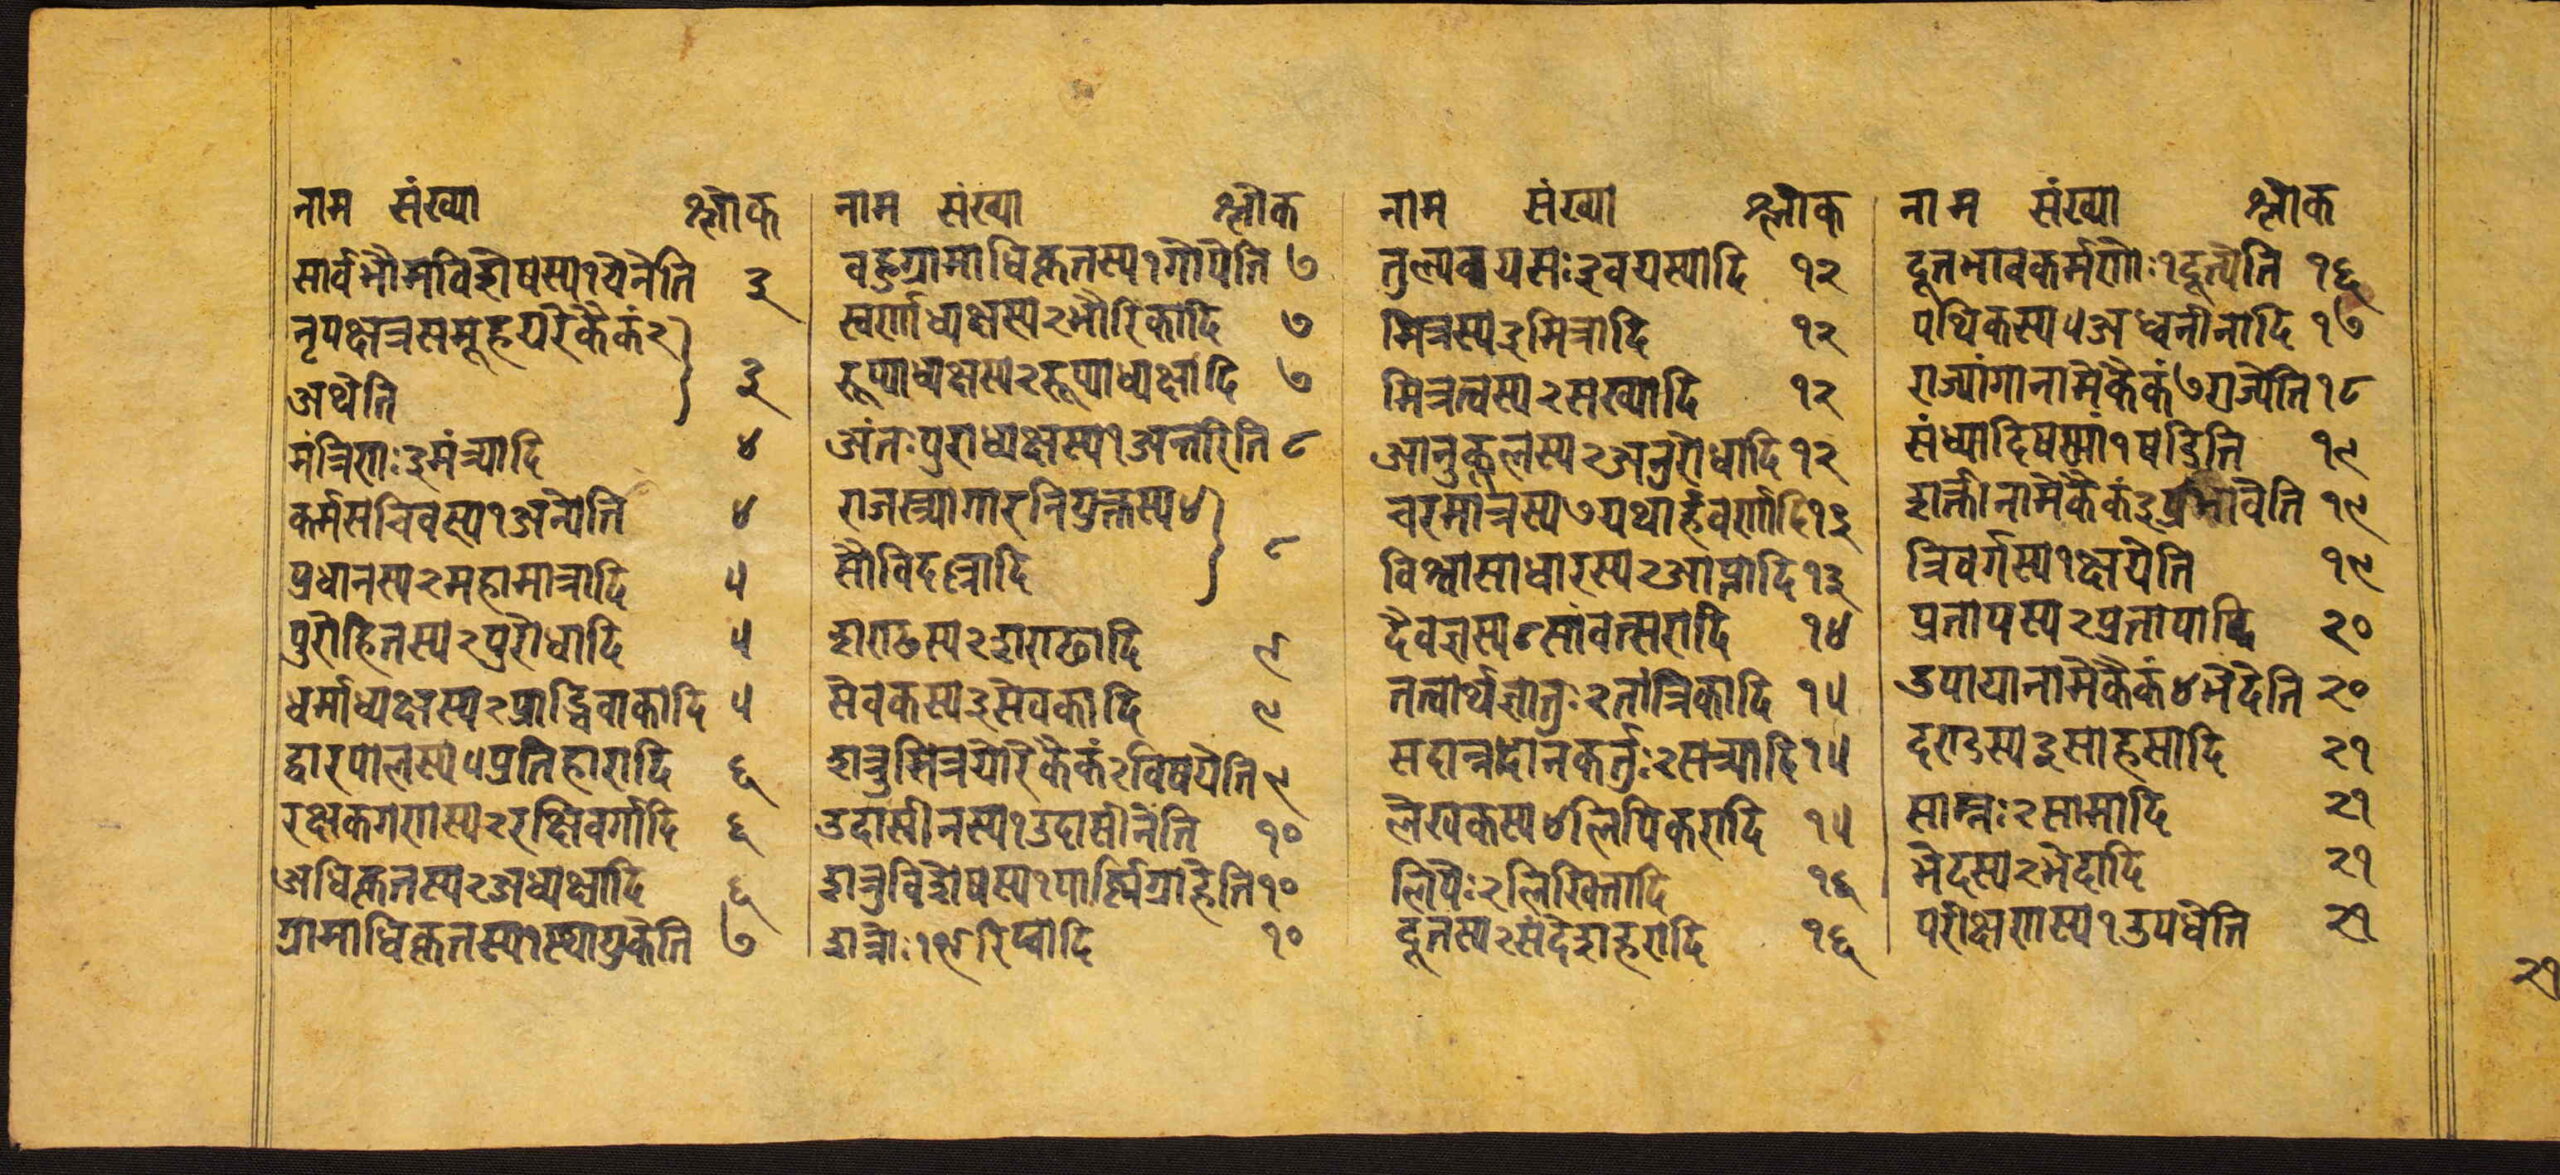 नाम संख्या श्लोक
सार्वभौमविशेषस्य१येनेति ३
नृपक्षत्रसमूहयोरेकैकं२
अथेति ३
मंत्रिणः३मंत्र्यादि ४
कर्मसचिवस्य१अन्येति ४
प्रधानस्य२महामात्रादि ५
पुरोहितस्य२पुरोधादि ५
धर्माध्यक्षस्य२प्राड्विवाकादि ५
द्वारपालस्य५प्रतिहारादि ६
रक्षकगणस्य२रक्षिवर्गादि ६
अधिकृतस्य२अध्यक्षादि ६
ग्रामाधिकृतस्य१स्थायुकेति ७
नाम संख्या श्लोक
वहुग्रामाधिकृतस्य१गोपेति ७
स्वर्णाध्यक्षस्य२भौरिकादि ७
रूप्याध्यक्षस्य२रूप्याध्यक्षादि ७
अंतःपुराध्यक्षस्य१अन्तरिति ८
राजस्त्र्यागारनियुक्तस्य४
सौविदल्लादि ८
शण्ढस्य२शण्ढादि ९
सेवकस्य३सेवकादि ९
शत्रुमित्रयोरेकैकं२विषयेति ९
उदासीनस्य१उदासीनेति १०
शत्रुविशेषस्य१पार्ष्णिग्राहेति १०
शत्रोः१९रिप्वादि १०
नाम संख्या श्लोक
तुल्यवयसः३वयस्यादि १२
मित्रस्य३मित्रादि १२
मित्रत्वस्य२सख्यादि १२
आनुकूलस्य२अनुरोधादि १२
चरमात्रस्य७यथार्हवर्णादि १३
विश्वासाधारस्य२आप्तादि १३
दैवज्ञस्य८सांवत्सरादि १४
तत्वार्थज्ञातुः२तांत्रिकादि १५
सदान्नदानकर्तुः२सत्र्यादि १५
लेखकस्य४लिपिकरादि १५
लिपेः२लिखितादि १६
दूतस्य२संदेशहरादि १६
नाम संख्या श्लोक
दूतभावकर्मणोः१दूत्येति १६
पथिकस्य५अध्वनीनादि १७
राज्यांगानामेकैकं७राज्येति १८
संध्यादिषण्णां१षडिति १९
शक्तीनामेकैकं३प्रभावेति १९
त्रिवर्गस्य१क्षयेति १९
प्रतापस्य२प्रतापादि २०
उपायानामेकैकं४भेदेति २०
दण्डस्य३साहसादि २१
साम्नः२सामादि २१
भेदस्य२भेदादि २१
परीक्षणस्य१उपधेति २१
२१